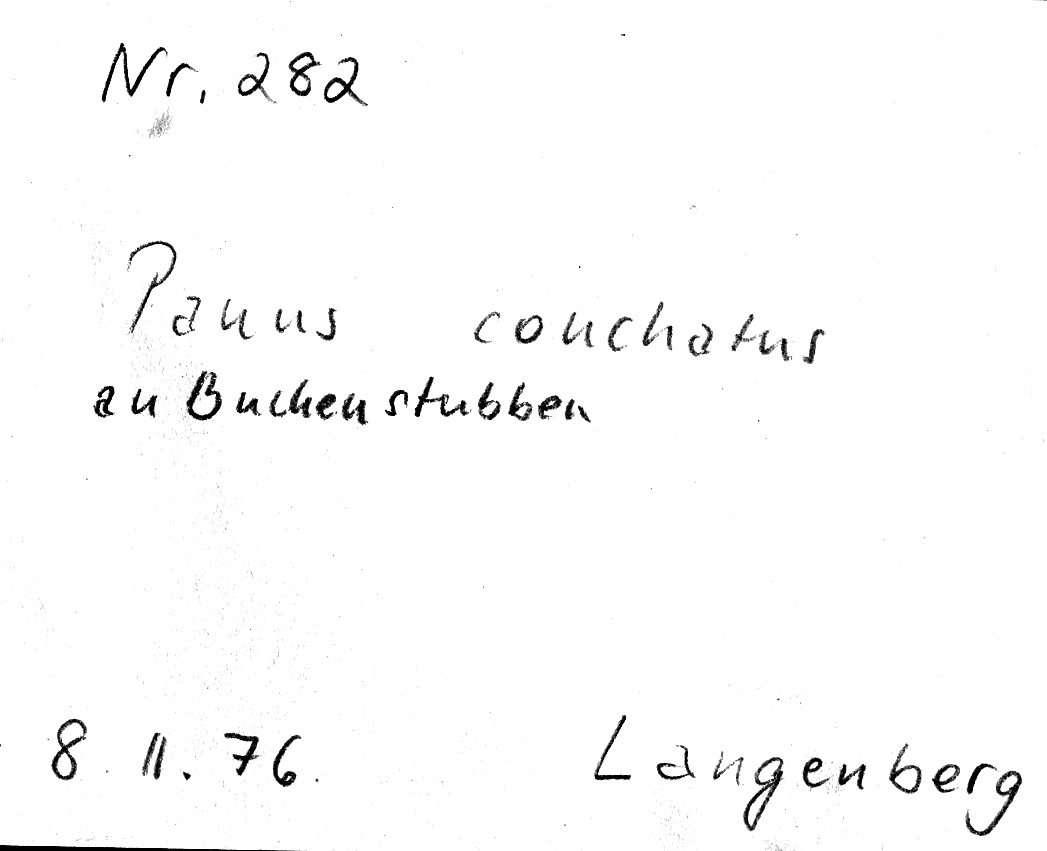 Nr. 282
Panus conchatus
an Buchenstubben
8. 11. 76. Langenberg